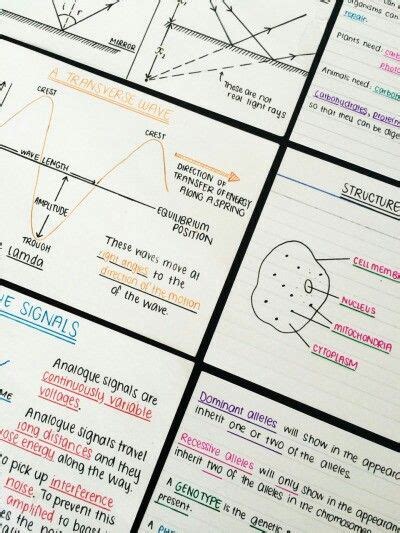 i
r
MIRROR
These are not
real light rays
organisms can
repair.
Plants need: carb
photo
Animals need: carboh
carbohydrates, proteins
so that they can be dige
A TRANSVERSE WAVE
CREST
CREST
WAVE LENGTH
AMPLITUDE
TROUGH
DIRECTION OF
TRANSFER OF ENERGY
ALONG A SPRING
EQUILIBRIUM
POSITION
lamda
These waves move at
right angles to the
direction of the motion
of the wave.
STRUCTURE
CELL MEMB
NUCLEUS
MITOCHONDRIA
CYTOPLASM
SIGNALS
Analogue signals are
continuously variable
voltages.
Analogue signals travel
long distances and they
lose energy along the way.
to pick up interference
noise. To prevent this
amplified to boost
Dominant alleles will show in the appeara
inherit one or two of the alleles.
Recessive alleles will only show in the appeara
inherit two of the alleles in the chromosome
A GENOTYPE is the genetic
present.